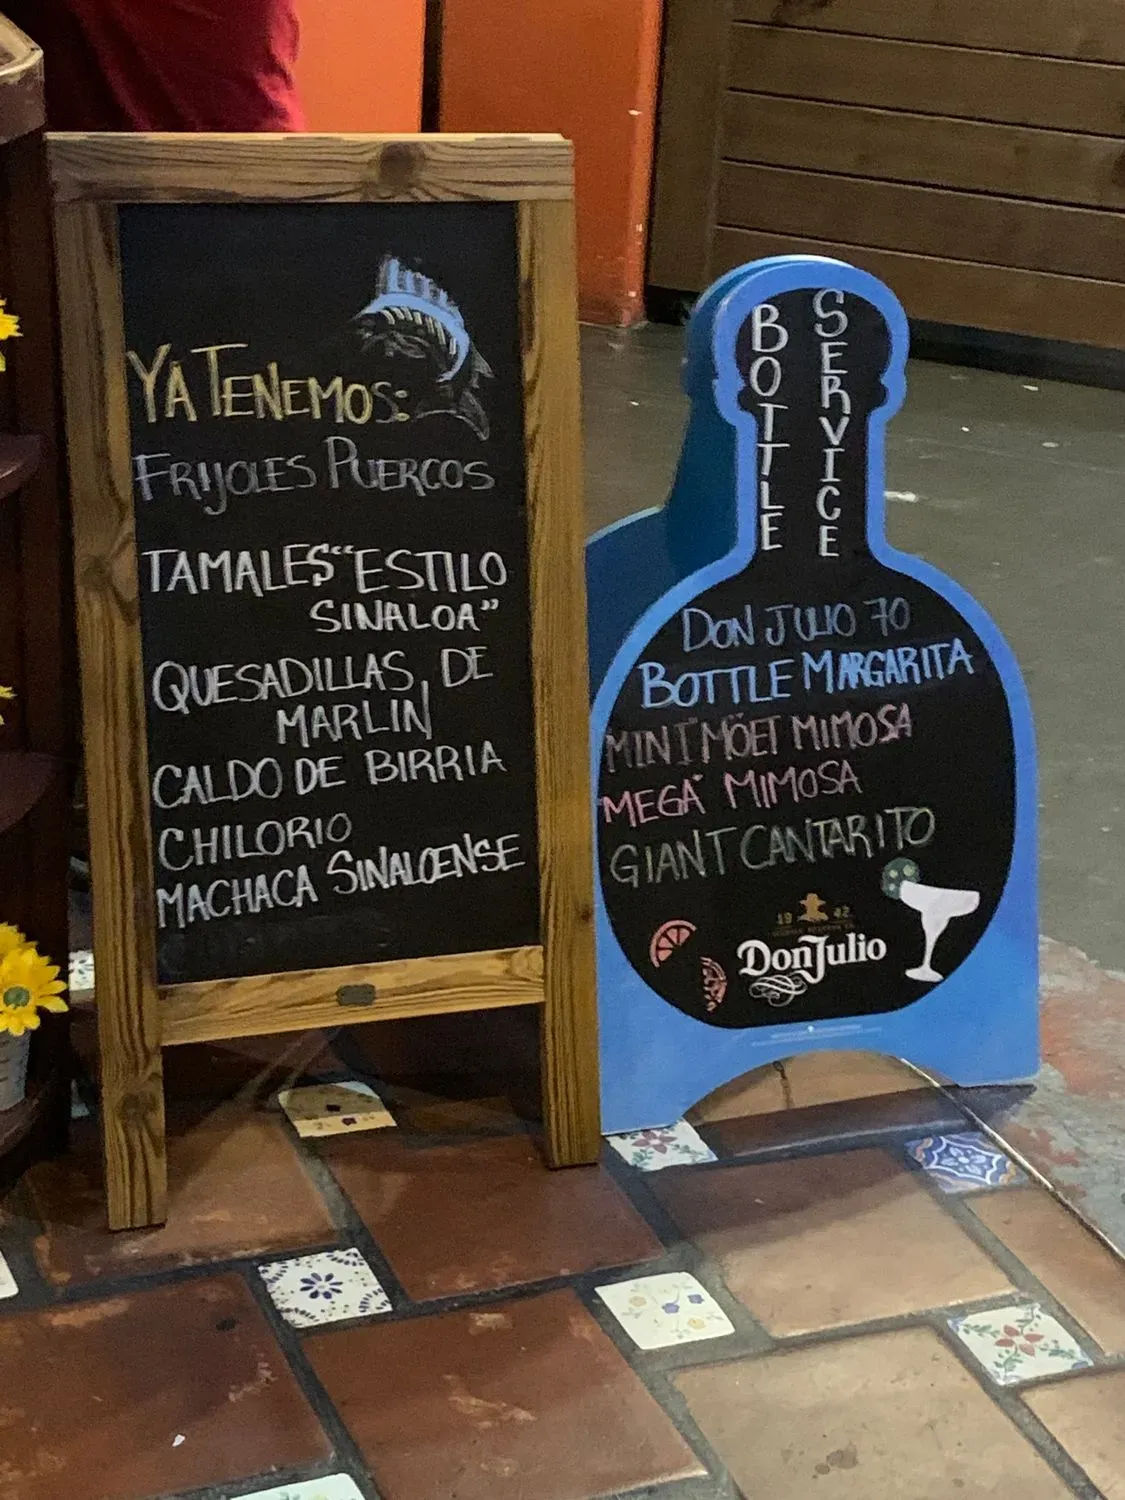 YA TENEMOS:
FRIJOLES PUERCOS
TAMALES "ESTILO
SINALOA"
QUESADILLAS DE
MARLIN
CALDO DE BIRRIA
CHILORIO
MACHACA SINALOENSE
BOTTLE
SERVICE
DON JULIO 70
BOTTLE MARGARITA
MINI MÖET MIMOSA
"MEGA" MIMOSA
GIANT CANTARITO
19 42
Don Julio